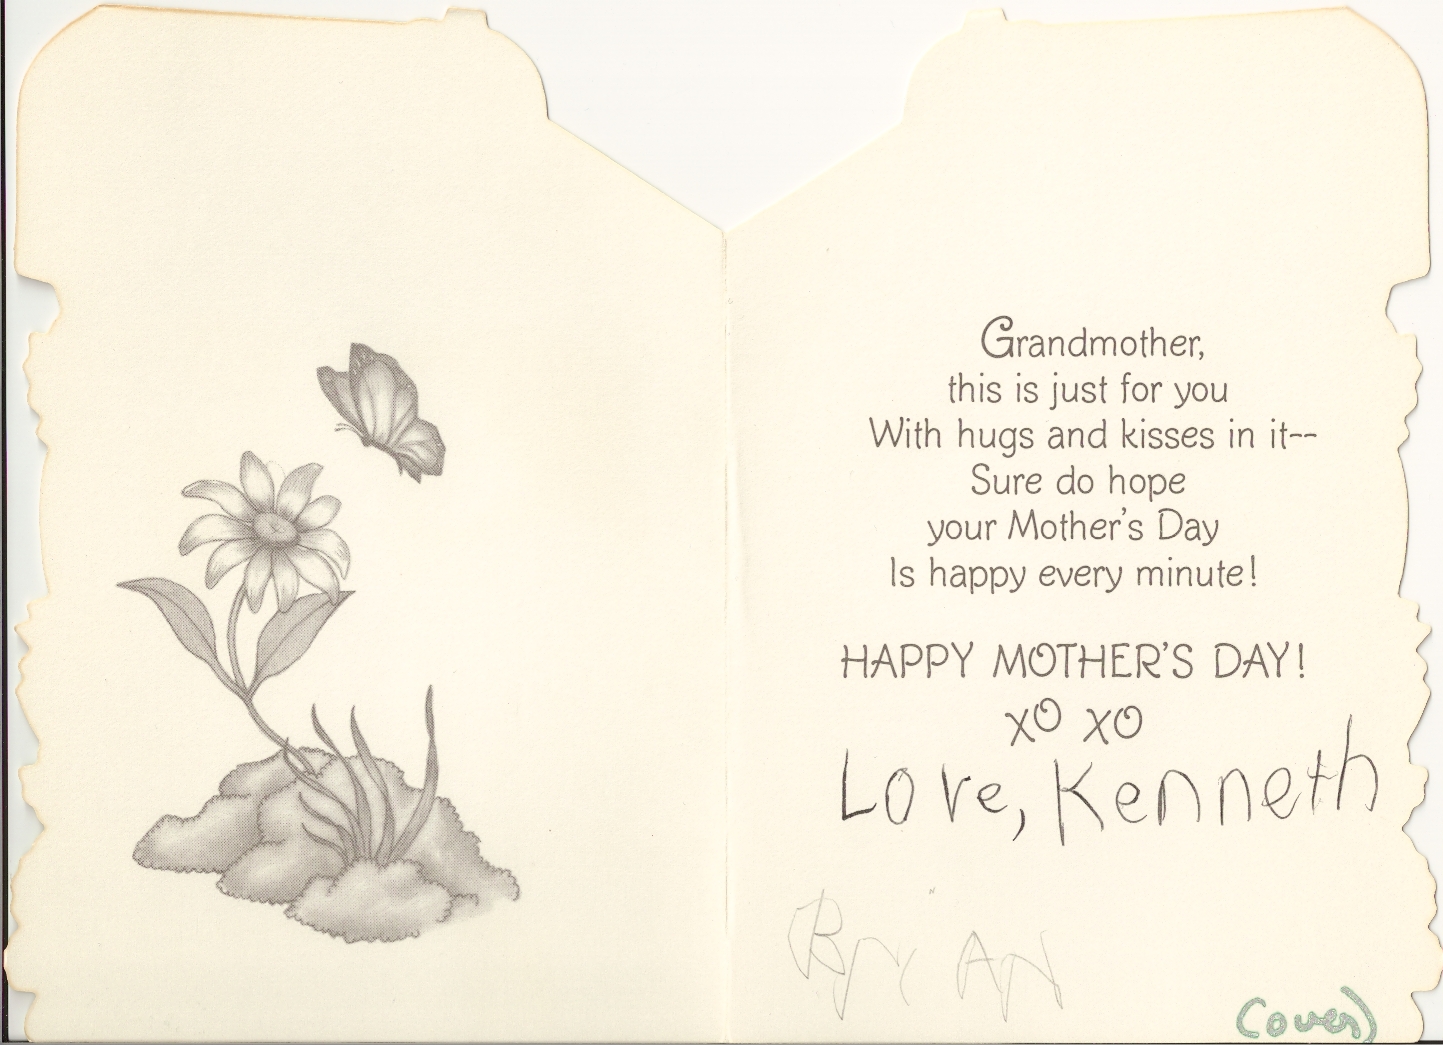 Grandmother,
this is just for you
With hugs and kisses in it--
Sure do hope
your Mother's Day
Is happy every minute!
HAPPY MOTHER'S DAY!
XO XO
Love, Kenneth
BriAN
(over)